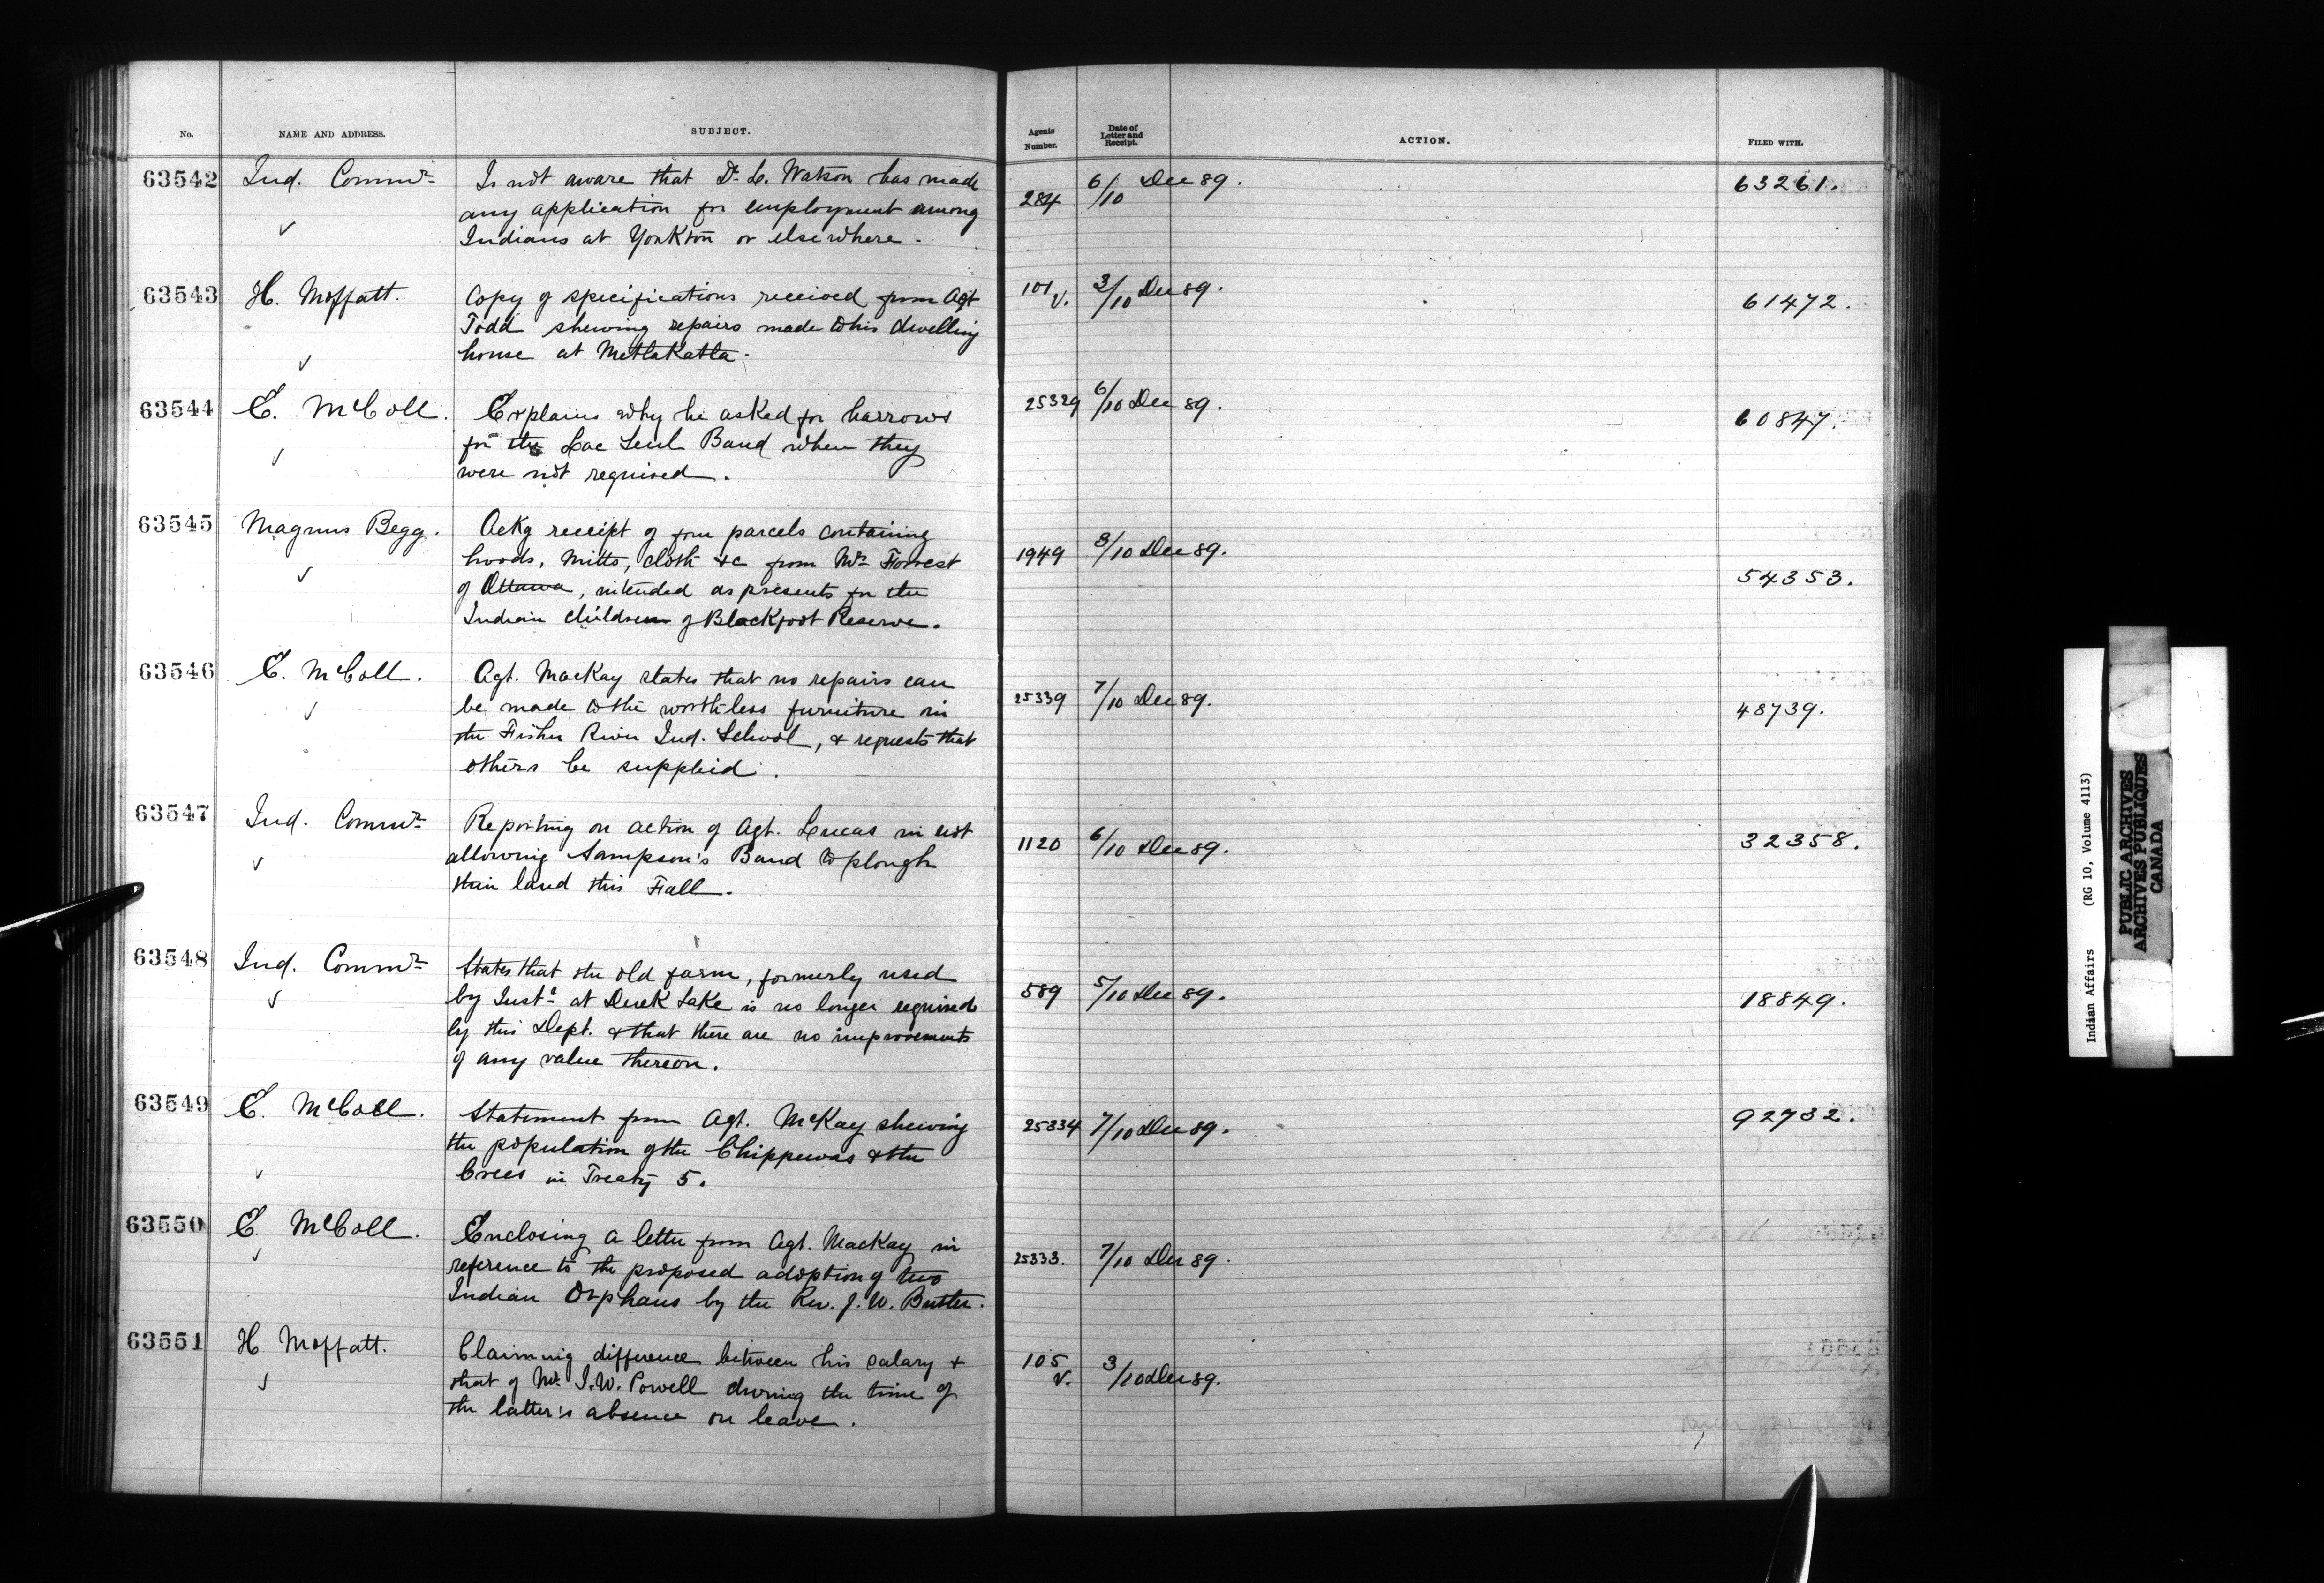 No. NAME AND ADDRESS. SUBJECT. Agents Number. Date of Letter and Receipt. ACTION. FILED WITH.
63542 Ind. Commr Is not aware that Dr. C. Watson has made 284 6/10 Dec 89. 63261.
any application for employment among
✓ Indians at Yorkton or elsewhere.
63543 H. Moffatt. Copy of specifications received from Agt 101 V. 3/10 Dec 89. 61472.
Todd shewing repairs made to his dwelling
✓ house at Metlakatla.
63544 E. McColl. Explains why he asked for harrows 25329 6/10 Dec 89. 60847.
✓ for the Lac Seul Band when they
were not required.
63545 Magnus Begg. Ackg receipt of four parcels containing 1949 3/10 Dec 89. 54353.
✓ hoods, mitts, cloth &c from Mrs Forrest
of Ottawa, intended as presents for the
Indian children of Blackfoot Reserve.
63546 E. McColl. Agt. MacKay states that no repairs can 25339 7/10 Dec 89. 48739.
✓ be made to the worthless furniture in
the Fisher River Ind. School, & requests that
others be supplied.
63547 Ind. Commr Reporting on action of Agt. Lucas in not 1120 6/10 Dec 89. 32358.
✓ allowing Sampson's Band to plough
their land this Fall.
63548 Ind. Commr States that the old farm, formerly used 589 5/10 Dec 89. 18849.
✓ by Instr at Duck Lake is no longer required
by this Dept. & that there are no improvements
of any value thereon.
63549 E. McColl. Statement from Agt. McKay shewing 25334 7/10 Dec 89. 92732.
the population of the Chippewas & the
✓ Crees in Treaty 5.
63550 E. McColl. Enclosing a letter from Agt. MacKay in 25333. 7/10 Dec 89.
✓ reference to the proposed adoption of two
Indian Orphans by the Rev. J. W. Butler.
63551 H Moffatt. Claiming difference between his salary & 105 V. 3/10 Dec 89.
✓ that of Mr. I. W. Powell during the time of
the latter's absence on leave.
Indian Affairs (RG 10, Volume 4113)
PUBLIC ARCHIVES
ARCHIVES PUBLIQUES
CANADA